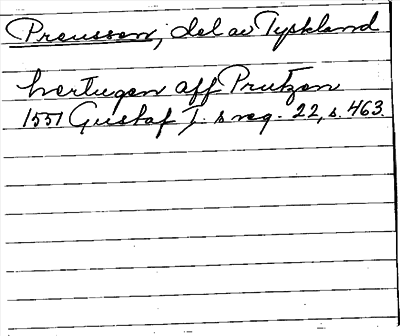 Preussen, del av Tyskland
hertugen aff Prutzen
1551 Gustaf I. s reg. 22, s. 463.